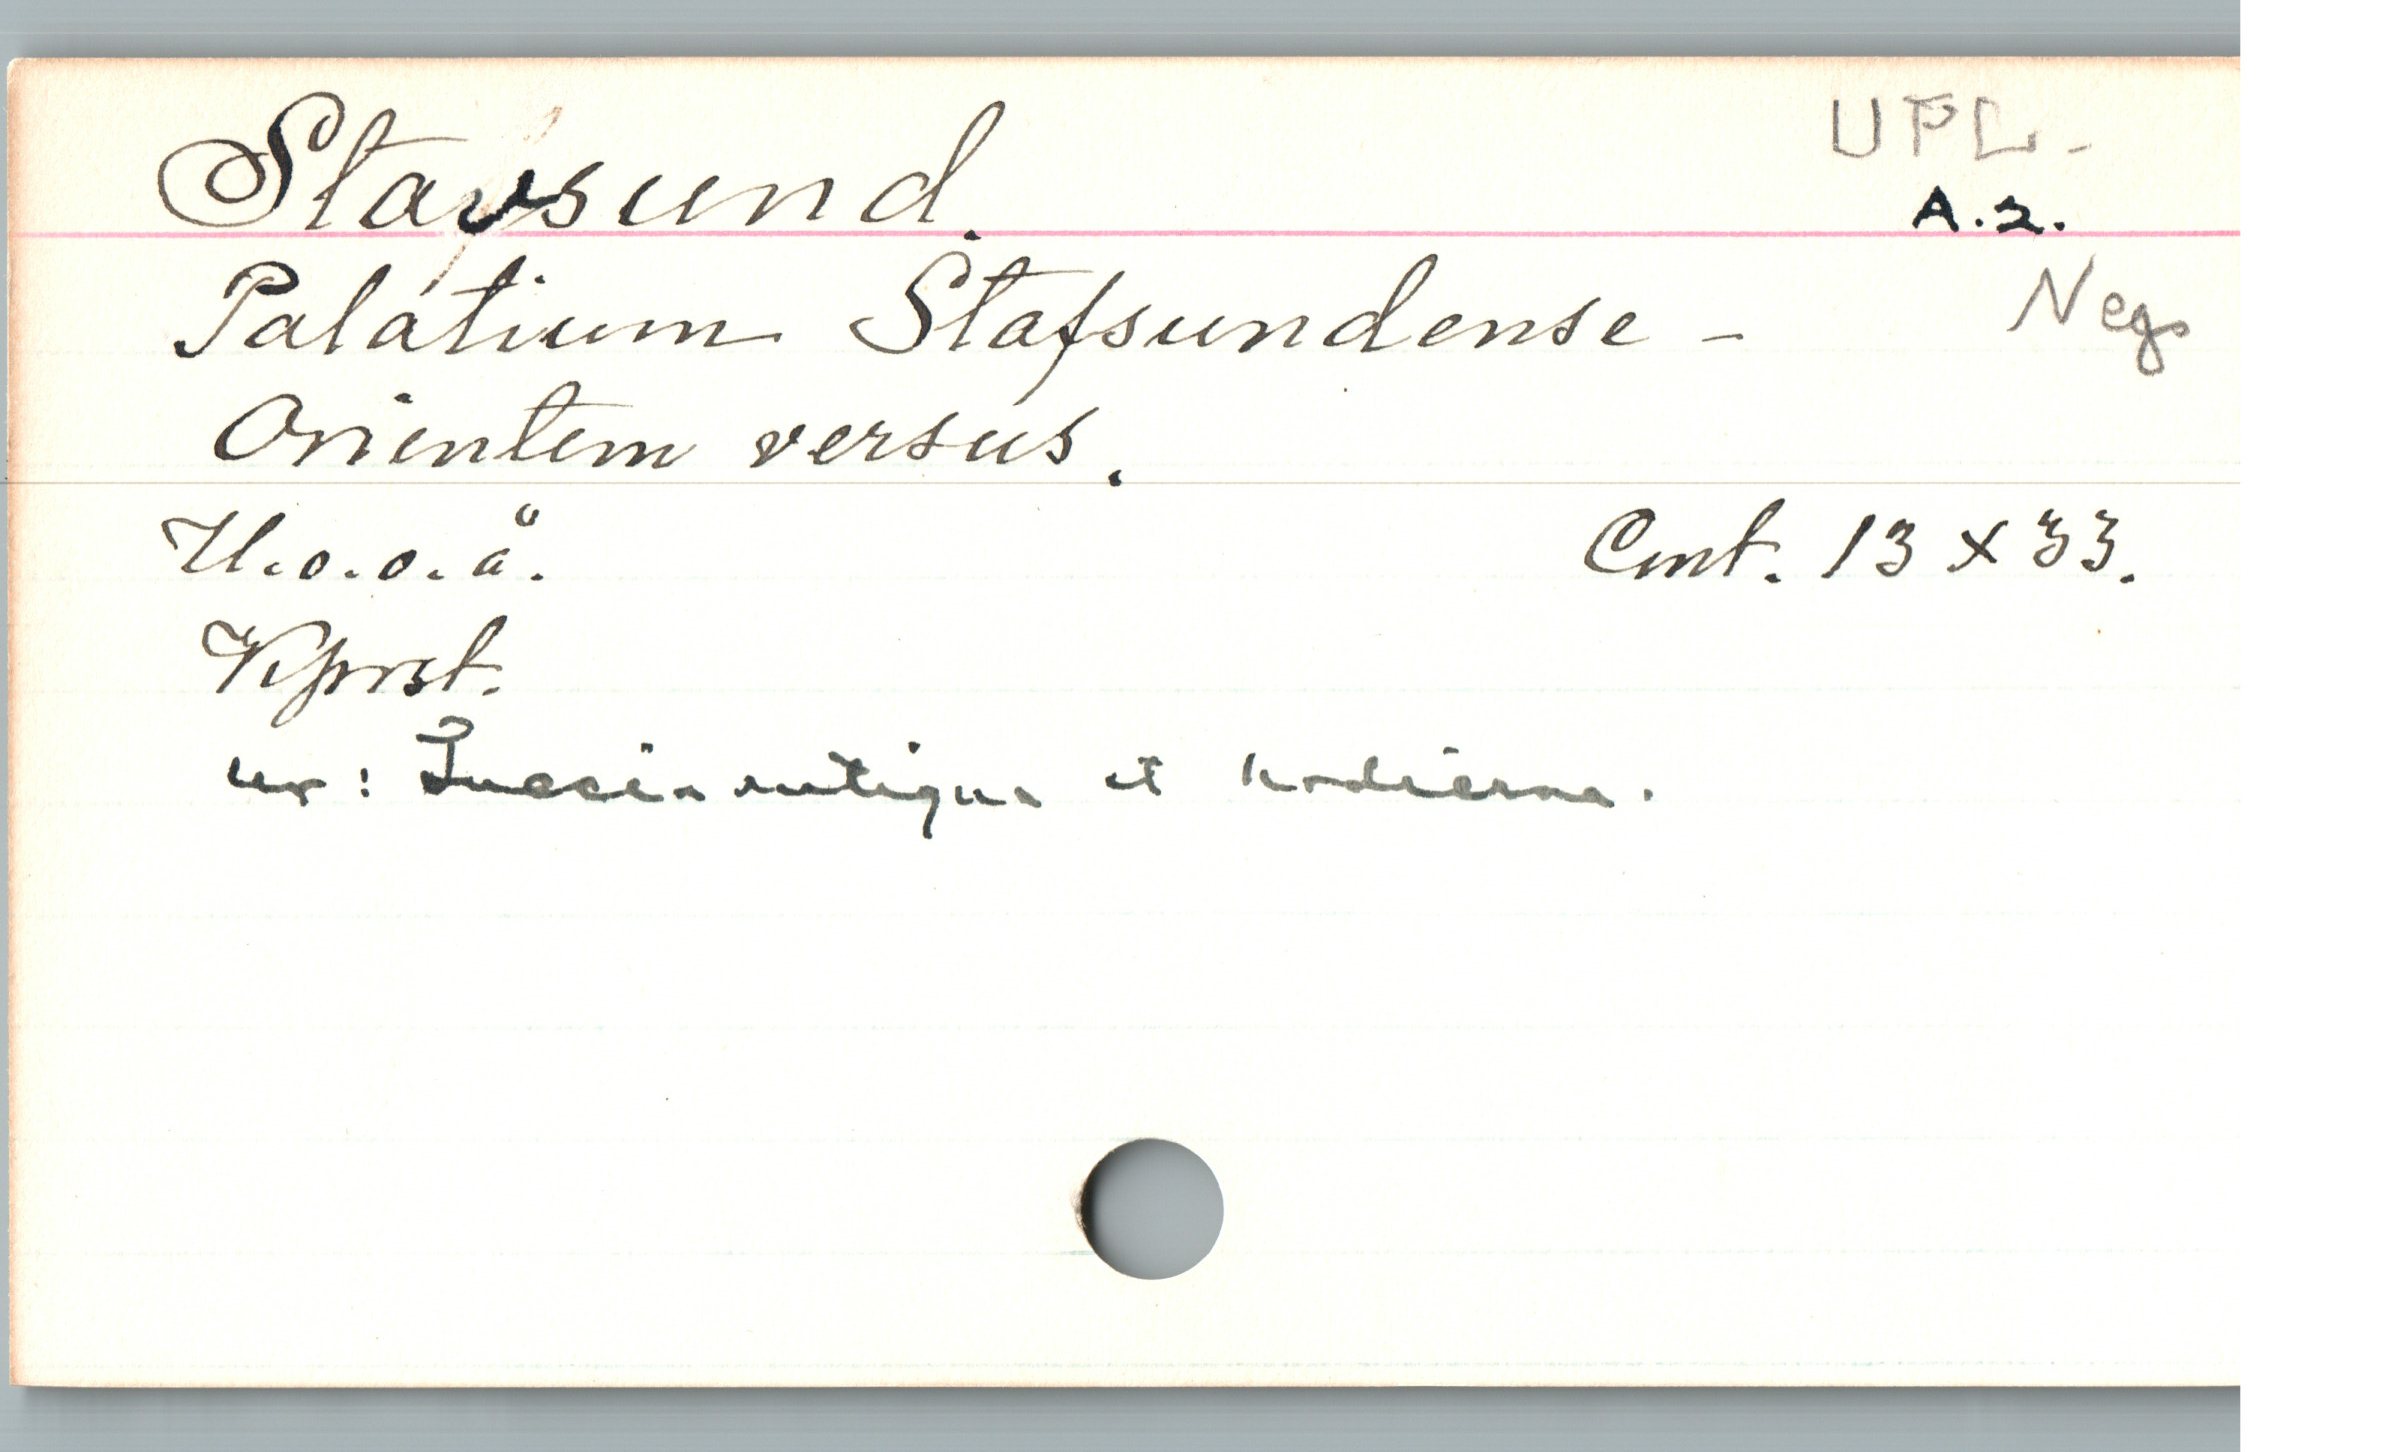 Stavsund.
UPL.-
A.2.
Palatium Stafsundense -
Neg.
Orientem versus.
U.o.o.å.
Cmt. 13 x 33.
Kprst.
ur: Suecia antiqua et hodierna.